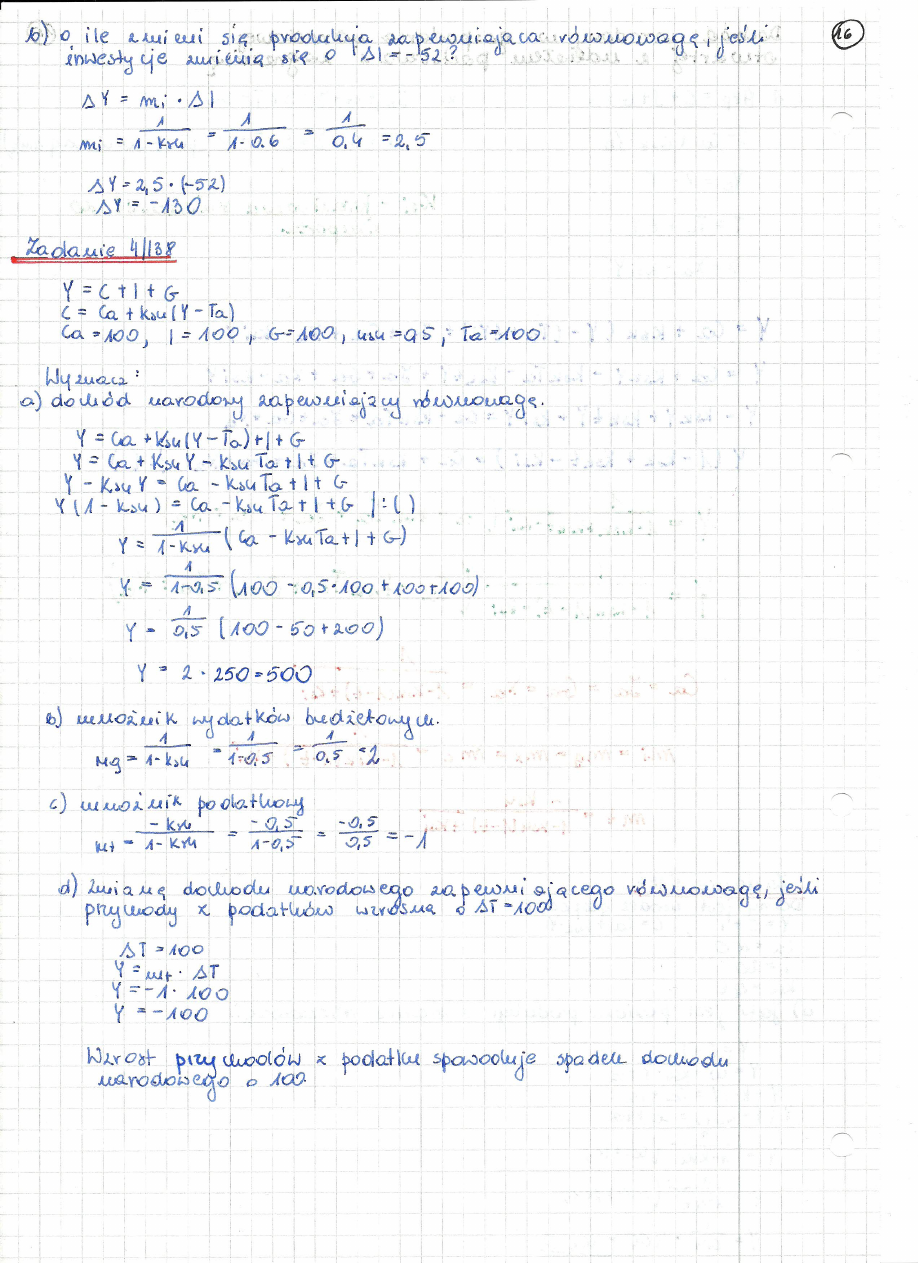 16
b) o ile zmieni się produkcja zapewniająca równowagę, jeśli
inwestycje zmienią się o ΔI = -52?
ΔY = mi · ΔI
mi = 1/(1-ksu) = 1/(1-0.6) = 1/0,4 = 2,5
ΔY = 2,5 · (-52)
ΔY = -130
Zadanie 4/138
Y = C + I + G
C = Ca + ksu (Y - Ta)
Ca = 100, I = 100, G = 100, ksu = 0,5; Ta = 100
Wyznacz:
a) dochód narodowy zapewniający równowagę.
Y = Ca + Ksu (Y - Ta) + I + G
Y = Ca + Ksu Y - Ksu Ta + I + G
Y - Ksu Y = Ca - Ksu Ta + I + G
Y (1 - Ksu) = Ca - Ksu Ta + I + G |:( )
Y = 1/(1-Ksu) (Ca - Ksu Ta + I + G)
Y = 1/(1-0,5) (100 - 0,5·100 + 100+100)
Y = 1/0,5 (100 - 50 + 200)
Y = 2 · 250 = 500
b) mnożnik wydatków budżetowych.
mg = 1/(1-ksu) = 1/(1-0,5) = 1/0,5 = 2
c) mnożnik podatkowy
mt = -ksu/(1-ksu) = -0,5/(1-0,5) = -0,5/0,5 = -1
d) zmianę dochodu narodowego zapewniającego równowagę, jeśli
przychody z podatków wzrosną o ΔT = 100
ΔT = 100
Y = mt · ΔT
Y = -1 · 100
Y = -100
Wzrost przychodów z podatku spowoduje spadek dochodu
narodowego o 100.